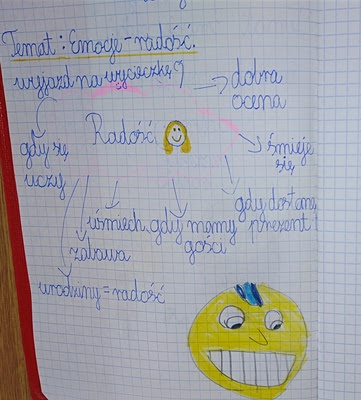 Temat: Emocje - radość.
wyjazd na wycieczkę
dobra
ocena
Radość
śmieje
się
gdy się
uczy
gdy dostanę
prezent
uśmiech
gdy mamy
gości
zabawa
urodziny = radość